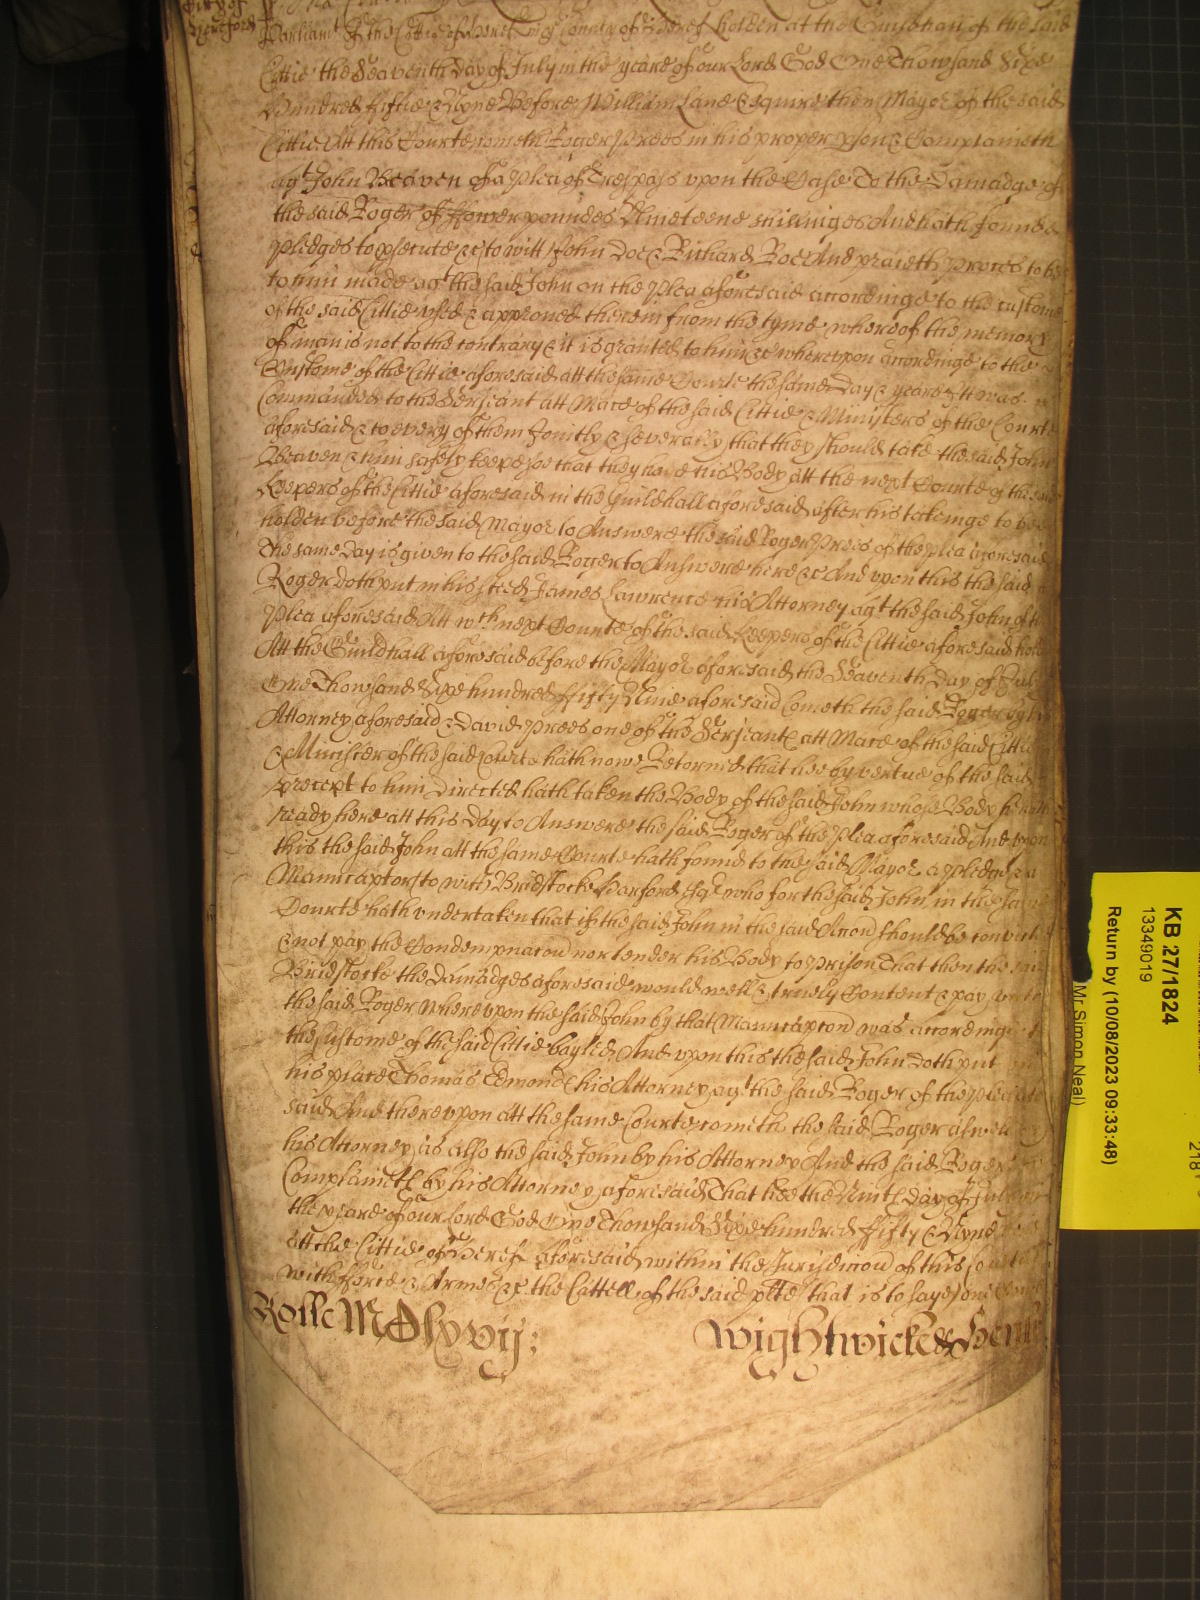 City of
Hereford
Parliamt of the Cittie of Heref in ye County of Heref holden at the Guildhall of the said
Cittie the Seaventh day of July in the yeare of our Lord God One Thowsand Sixe
Hundred Fiftie & Nyne Before William Lane Esquire then Mayor of the said
Cittie Att this Courte cometh Roger Prees in his proper pson & Complaineth
agt John Beaven of a Plea of Trespass upon the Case To the Damadge of
the said Roger of ffower poundes Nineteene shillinges And hath found
pledges to psecute &c to witt John Doe & Richard Roe And praieth proces to be
to him made agt the said John on the Plea aforesaid accordinge to the custome
of the said Cittie used & approved therein from the tyme whereof the memory
of man is not to the contrary & it is granted to him &c whereupon accordinge to the
Custome of the Cittie aforesaid att the same Courte the same Day & yeare It was
Commanded to the Serjeant att Mace of the said Cittie & Ministers of the Courte
aforesaid & to every of them Joinctly & severally that they should take the said John
Beaven & him safely keepe soe that they have his Body att the next Courte of the said
Keepers of the Cittie aforesaid in the Guildhall aforesaid after his takeinge to bee
holden before the said Mayor to Answere the said Roger Prees of the plea aforesaid
The same Day is given to the said Roger to Answere here &c And upon this the said
Roger doth put in his steed James Lawrence his Attorney agt the said John of the
Plea aforesaid Att wch next Courte of the said Keepers of the Cittie aforesaid
Att the Guildhall aforesaid before the Mayor aforesaid the Seaventh Day of
One Thowsand Sixe hundred ffifty Nine aforesaid Cometh the said Roger by his
Attorney aforesaid & David Prees one of the Serjeants att Mace of the said Cittie
& Minister of the said Courte hath nowe Retorned that hee by vertue of the said
precept to him Directed hath taken the Body of the said John whose Body he hath
ready here att this Day to Answere the said Roger of the Plea aforesaid And upon
this the said John att the same Courte hath found to the said Mayor a pledge & a
Manucaptor to witt Bridstocke Harford Esqr who for the said John in the same
Courte hath undertaken that if the said John in the said Accon should be convict
& not pay the Condempnacon nor tender his Body to prison That then the said
Bridstocke the Damadges aforesaid would well & truely Content & pay unto
the said Roger Whereupon the said John by that Manucapcon was accordinge to
the Custome of the said Cittie bayled And upon this the said John doth put in
his place Thomas Edmonds his Attorney agt the said Roger of the Plea
said And thereupon att the same Courte cometh the said Roger aswell by
his Attorney as also the said John by his Attorney And the said Roger
Complaineth by his Attorney aforesaid That hee the Nynth day of July in
the yeare of our Lord God One Thowsand Sixe hundred ffifty & Nyne
att the Cittie of Heref aforesaid within the Jurisdiccon of this Courte
with fforce & Armes &c the Cattell of the said plte that is to saye one
Rolle MDlxvij:
Wightwicke &
KB 27/1824
13349019
Return by (10/08/2023 09:33:48)
Mr Simon Neal)